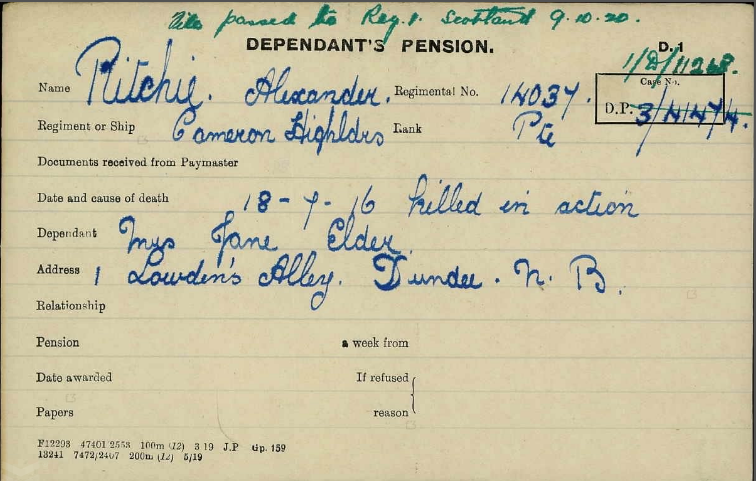 File passed to Reg. 1. Scotland 9.10.20.
DEPENDANT'S PENSION.
D.1
1/D/11268.
Name Ritchie. Alexander. Regimental No. 14037.
Case No.
D.P. 3/
Regiment or Ship Cameron Highldrs Rank Pte
Documents received from Paymaster
Date and cause of death 18-7-16 killed in action
Dependant Mrs Jane Elder.
Address 1 Lowden's Alley. Dundee. N. B.
Relationship
Pension a week from
Date awarded If refused
Papers reason
F12293 47401/2553 100m (12) 3 19 J.P Gp. 159
13241 7472/2407 200m (12) 5/19